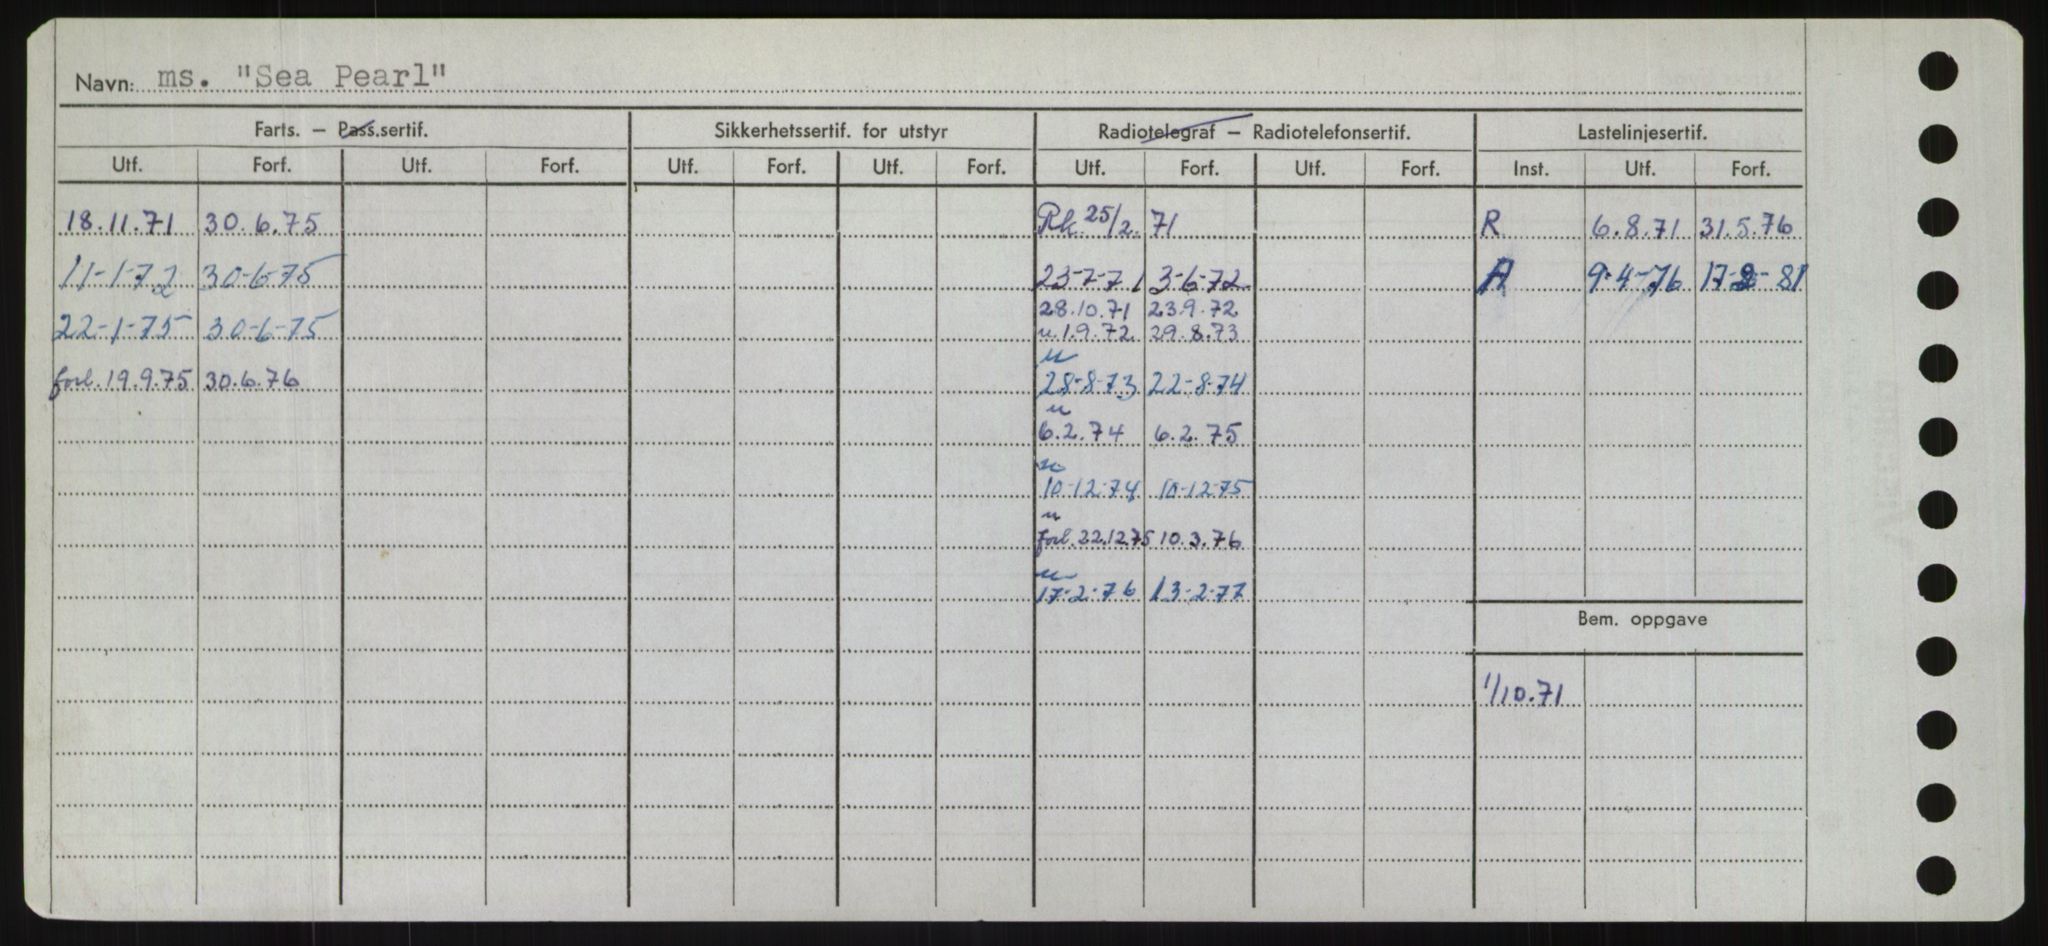 Navn: ms. "Sea Pearl"
Farts. – Pass.sertif. Sikkerhetssertif. for utstyr Radiotelegraf – Radiotelefonsertif. Lastelinjesertif.
Utf. Forf. Utf. Forf. Utf. Forf. Utf. Forf. Utf. Forf. Utf. Forf. Inst. Utf. Forf.
18.11.71 30.6.75 Rk. 25/2. 71 R 6.8.71 31.5.76
11-1-72 30-6-75 23-7-71 3-6-72 A 9-4-76 17-2-81
28.10.71 23.9.72
22-1-75 30-6-75 u.1.9.72 29.8.73
u
forl. 19.9.75 30.6.76 28-8-73 22-8-74
u
6.2.74 6.2.75
u
10-12-74 10-12-75
u
forl. 22.12.75 10.3.76
u
17-2-76 13-2-77
Bem. oppgave
1/10.71